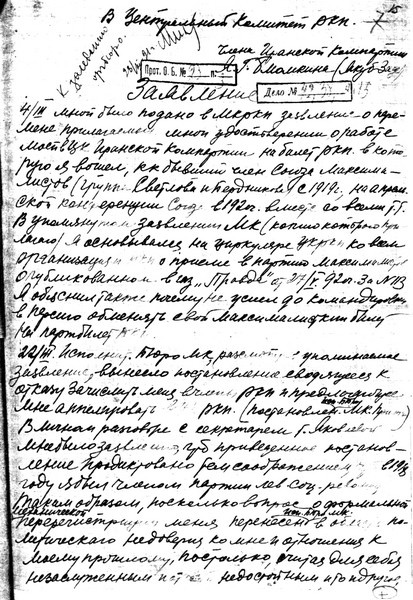 В Центральный Комитет РКП.
Члена Иранской Компартии
Я. Г. Блюмкина (Якуб-Заде)
К заседанию
Оргбюро.
Прот. О. Б. №
Заявление
Дело №
4/III мной было подано в МК РКП заявление о пере-
мене прилагаемого мной удостоверения о работе
моей в ЦК Иранской Компартии на билет РКП. в кото-
рую я вошел, как бывший член Союза Максима-
листов (группа Светлова и Бердникова) с 1919 г., на
ской конференции Союза в 1920 г. вместе со всеми т.т.
В упомянутом заявлении МК (копию которого при-
лагаю) я основывался на циркуляре ЦК РКП ко всем
организациям о приеме в партию Максималистов
опубликованном в газ. „Правда" от
Я объяснил также почему не успел до командировки
в Персию обменять свой Максималистский билет
на партбилет РКП.
22/III. Исполнит. Бюро МК, рассмотрев упоминаемое
заявление, вынесло постановление сводящееся к
отказу зачислить меня в члены РКП и предложившее
мне апеллировать РКП. (постановление МК при
В личном разговоре с секретарем т. Яковлевой
мне было заявлено, что приведенное постанов-
ление продиктовано теми соображениями в 1918
году я был членом партии лев. соц.-револю
Таким образом, поскольку вопрос о формальной
механической
перерегистрации меня перенесен в область по-
литического недоверия ко мне и отношения к
моему прошлому, постольку, считая для себя
незаслуженным недостойным и то и другое,